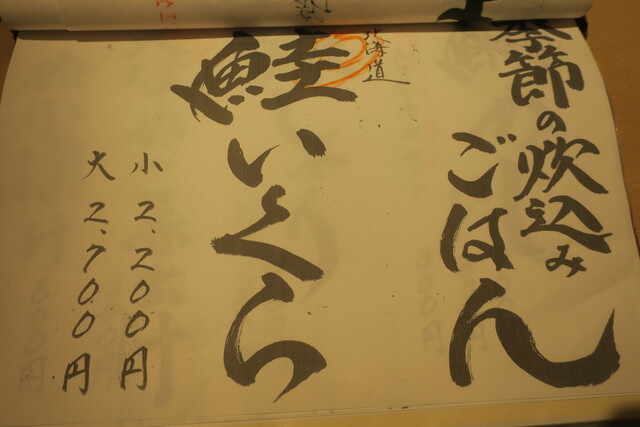 季節の炊込み
ごはん
北海道
鮭いくら
小 2,200円
大 2,700円